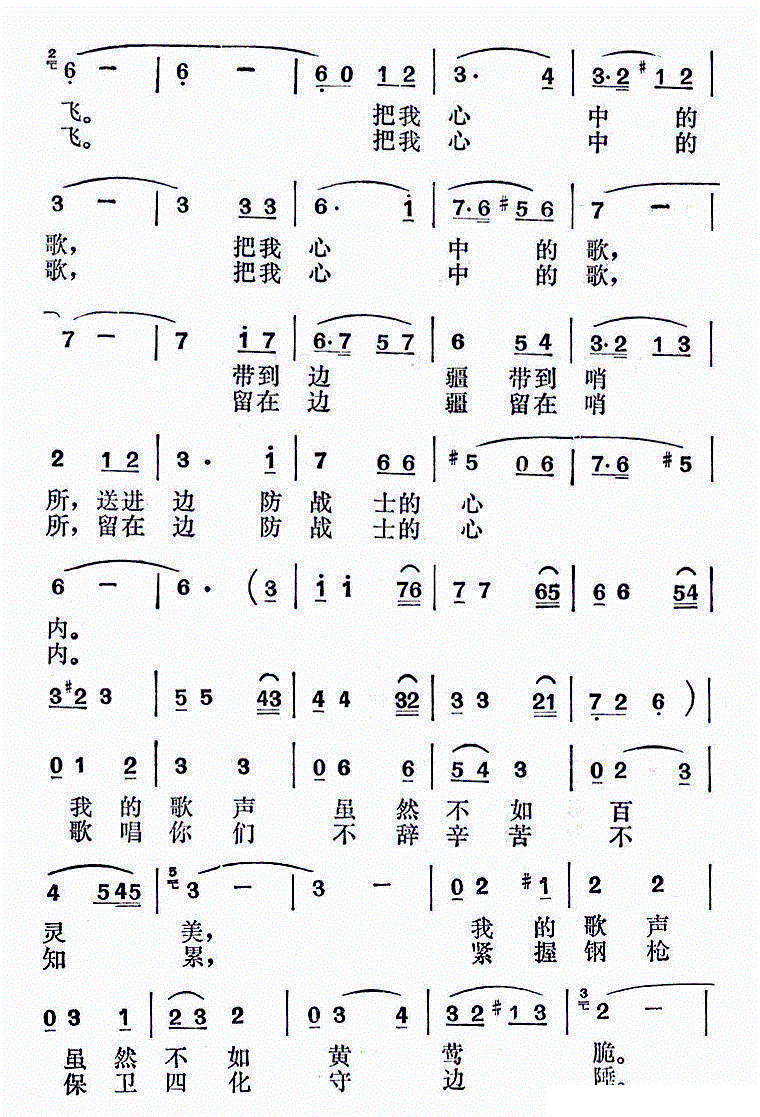 6 — | 6 — | 6 0 1 2 | 3· 4 | 3·2 #1 2 |
飞。 把我心 中 的
飞。 把我心 中 的
3 — | 3 3 3 | 6· 1 | 7·6 #5 6 | 7 — |
歌, 把我心 中 的歌,
歌, 把我心 中 的歌,
7 — | 7 1 7 | 6·7 5 7 | 6 5 4 | 3·2 1 3 |
带到 边 疆 带到 哨
留在 边 疆 留在 哨
2 1 2 | 3· 1 | 7 6 6 | #5 0 6 | 7·6 #5 |
所, 送进 边 防 战 士的 心
所, 留在 边 防 战 士的 心
6 — | 6· (3 | 1 1 76 | 7 7 65 | 6 6 54 |
内。
内。
3 #2 3 | 5 5 43 | 4 4 32 | 3 3 21 | 7 2 6 ) |
0 1 2 | 3 3 | 0 6 6 | 5 4 3 | 0 2 3 |
我 的 歌 声 虽 然 不 如 百
歌 唱 你 们 不 辞 辛 苦 不
4 5 45 | 3 — | 3 — | 0 2 #1 | 2 2 |
灵 美, 我 的 歌 声
知 累, 紧 握 钢 枪
0 3 1 | 2 3 2 | 0 3 4 | 3 2 #1 3 | 2 — |
虽 然 不 如 黄 莺 脆。
保 卫 四 化 守 边 陲。